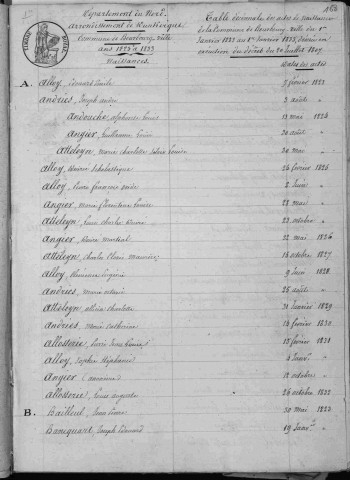 Département du Nord.
arrondissement de Dunkerque
Commune de Bourbourg ville
ans 1823 à 1832
Naissances.
Table décennale des actes de Naissance
de la Commune de Bourbourg ville du 1er
Janvier 1823 au 1er Janvier 1833, dressée en
exécution du Décret du 20 Juillet 1807.
Dates des actes
A. Alloy, Edouard Emile 5 février 1823
Andries, Joseph 3 août
Andouche, alphonse Louis 13 mai 1824
Angier, Guillaume Louis 20 août
Atteleyn, marie charlotte Louise 20 mai
Alloy, Scholastique 26 février 1825
Alloy, Louis françois 2 Juin
Angier, marie florentine Louise 28 mai
Atteleyn, Louis charles 22 octobre
Angier, martial 22 mai 1826
Atteleyn, charles Maurice 16 octobre 1827
Alloy, Eugénie 9 Juin 1828
Andries, marie 25 août
Atteleyn, charlotte 31 Janvier 1829
Andries, marie catherine 14 février 1830
Allosterie, Louis 15 février 1831
Alloy, Sophie Stéphanie 4 Janvr
Angier (anonime) 12 octobre
Allosterie, Louis auguste 26 octobre 1832
B. Bailleul, 30 mai 1823
Bancquart, Joseph Edouard 19 Janvr